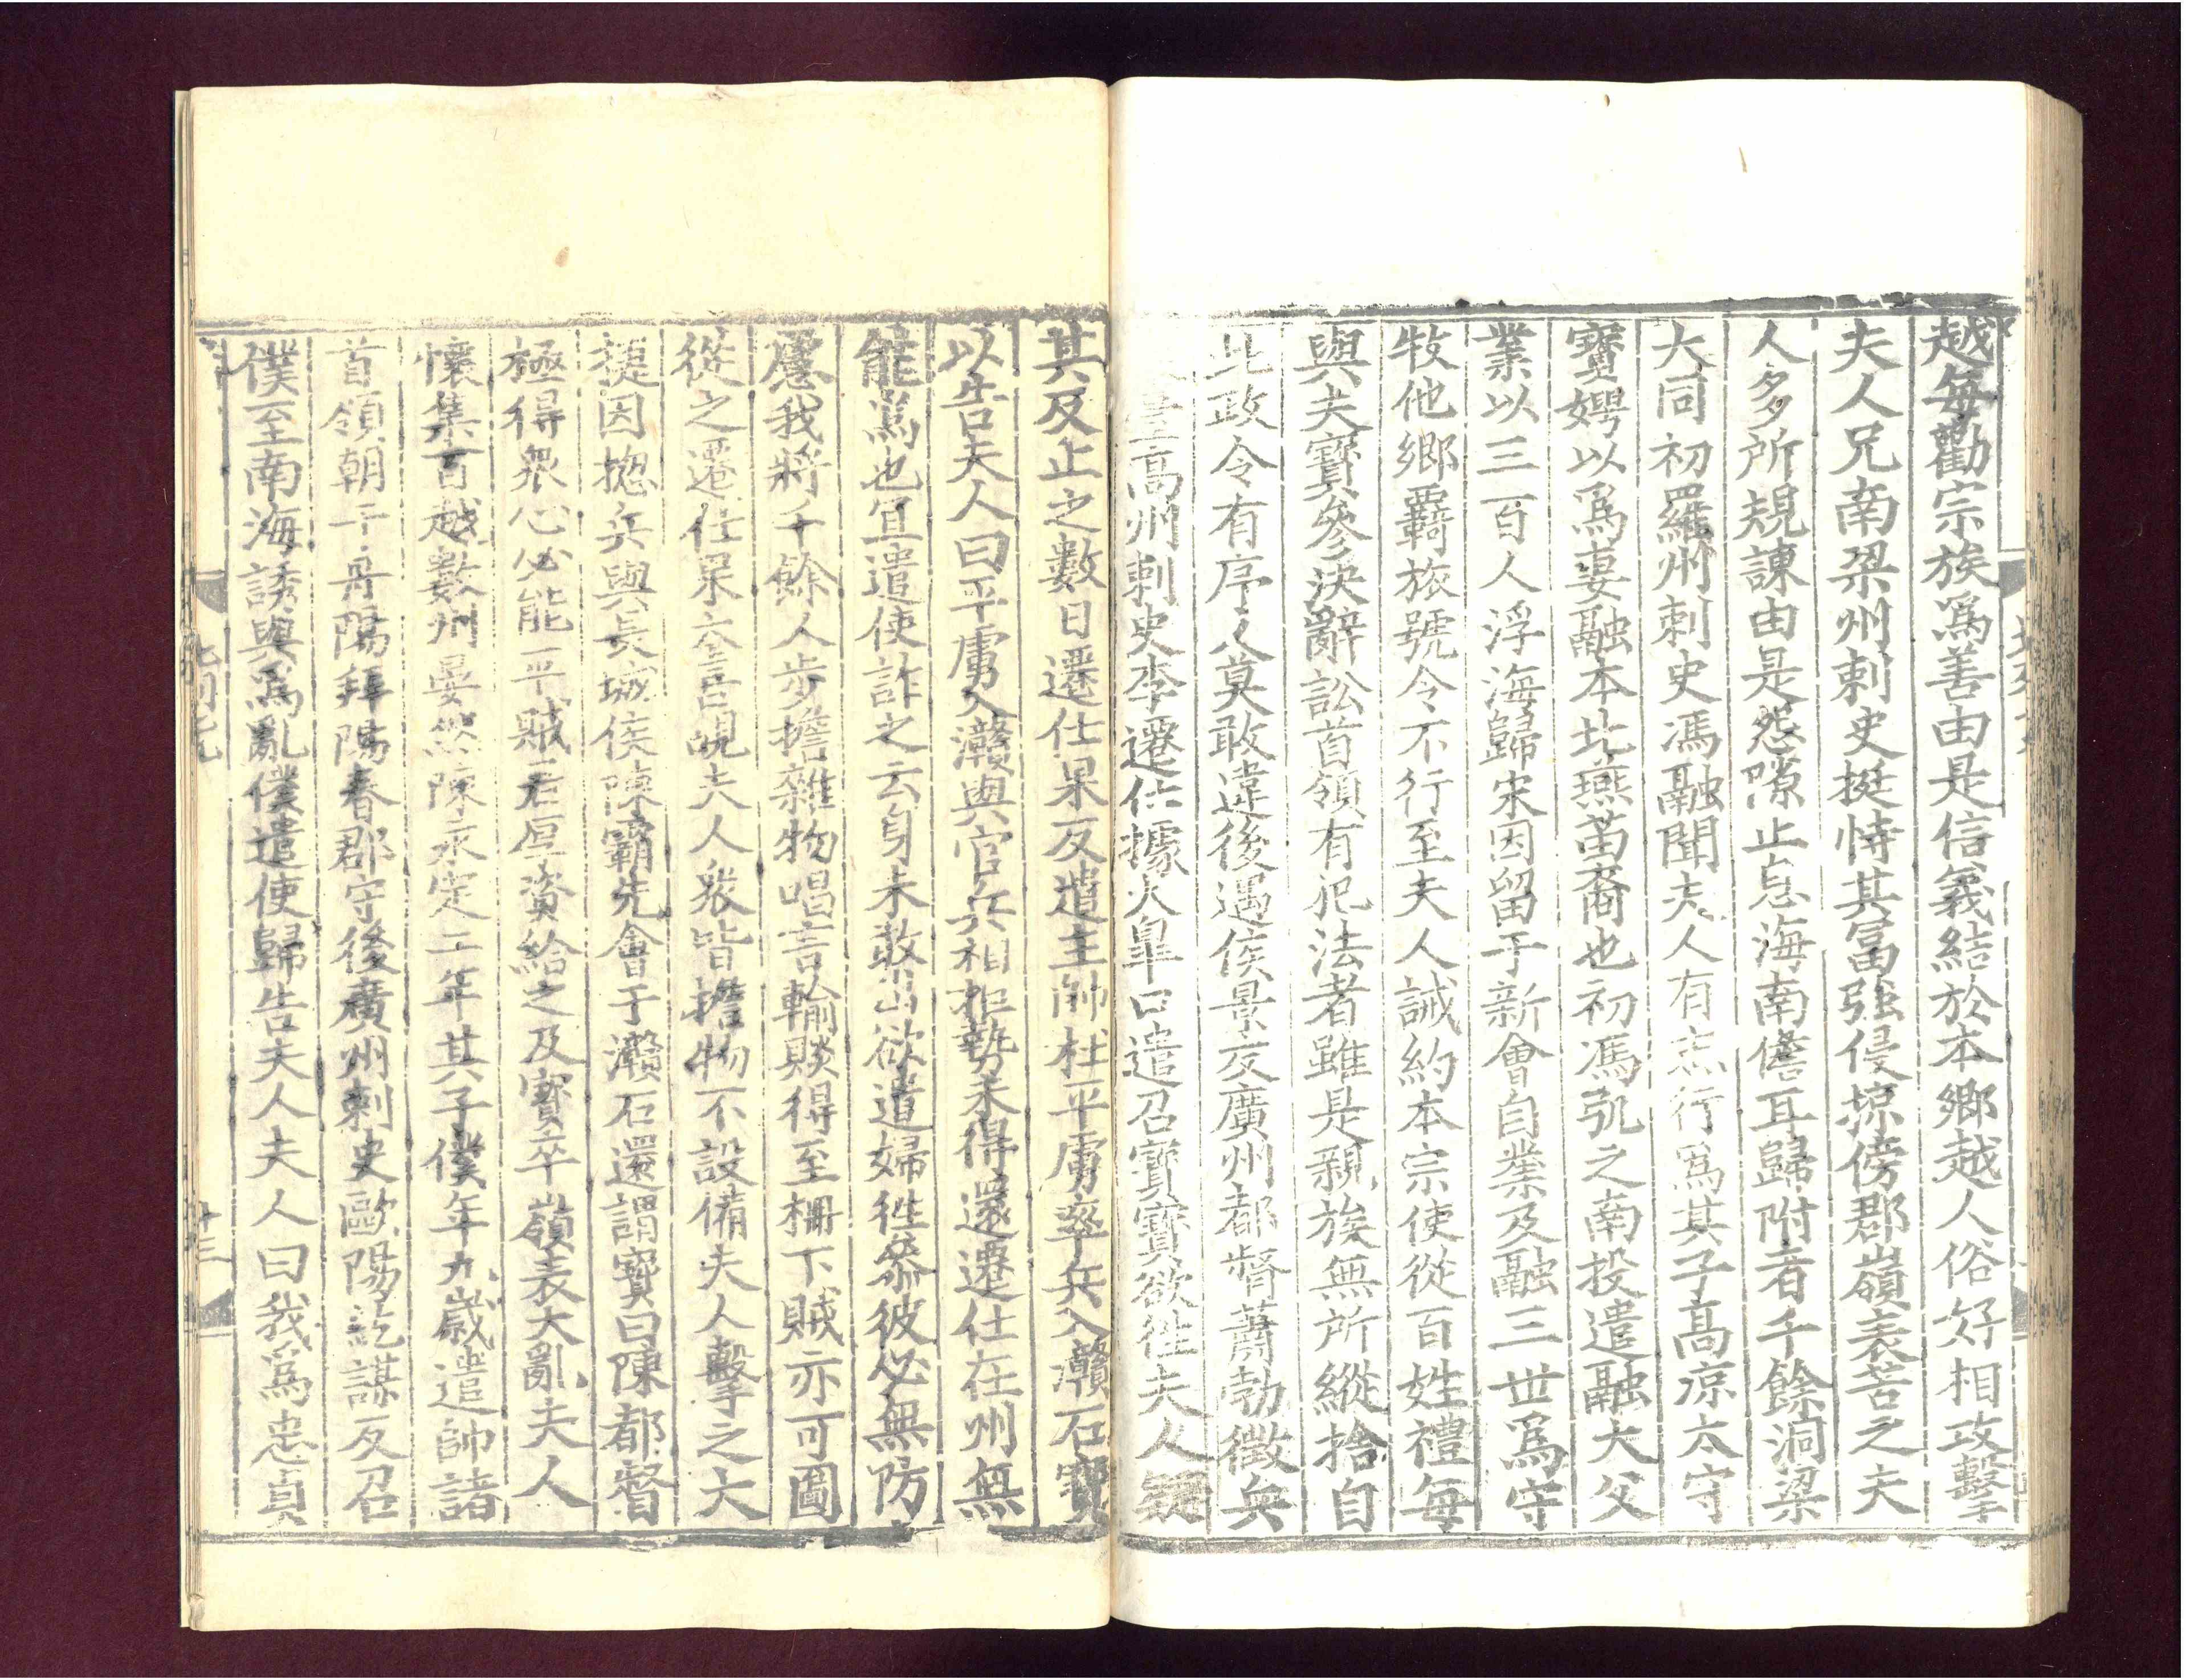 越每勸宗族爲善由是信義結於本鄉越人俗好相攻擊
夫人兄南梁州刺史挺恃其富強侵掠傍郡嶺表苦之夫
人多所規諫由是怨隙止息海南儋耳歸附者千餘洞梁
大同初羅州刺史馮融聞夫人有志行爲其子高凉太守
寶娉以爲妻融本北燕苗裔也初馮弘之南投遣融大父
業以三百人浮海歸宋因留于新會自業及融三世爲守
牧他鄉羇旅號令不行至夫人誡約本宗使從百姓禮每
與夫寶參決辭訟首領有犯法者雖是親族無所縱捨自
此政令有序人莫敢違後遇侯景反廣州都督蕭勃徵兵
臺高州刺史李遷仕據大皐口遣召寶寶欲往夫人疑
其反止之數日遷仕果反遣主帥杜平虜率兵入灨石寶
以告夫人曰平虜入灨與官兵相拒勢未得還遷仕在州無
能爲也宜遣使詐之云身未敢出欲遣婦往參彼必無防
慮我將千餘人步擔雜物唱言輸賧得至柵下賊亦可圖
從之遷仕果大喜覘夫人衆皆擔物不設備夫人擊之大
捷因揔兵與長城侯陳霸先會于灨石還謂寶曰陳都督
極得衆心必能平賊君厚資給之及寶卒嶺表大亂夫人
懷集百越數州晏然陳永定二年其子僕年九歲遣帥諸
首領朝于丹陽拜陽春郡守後廣州刺史歐陽紇謀反召
僕至南海誘與爲亂僕遣使歸告夫人夫人曰我爲忠貞